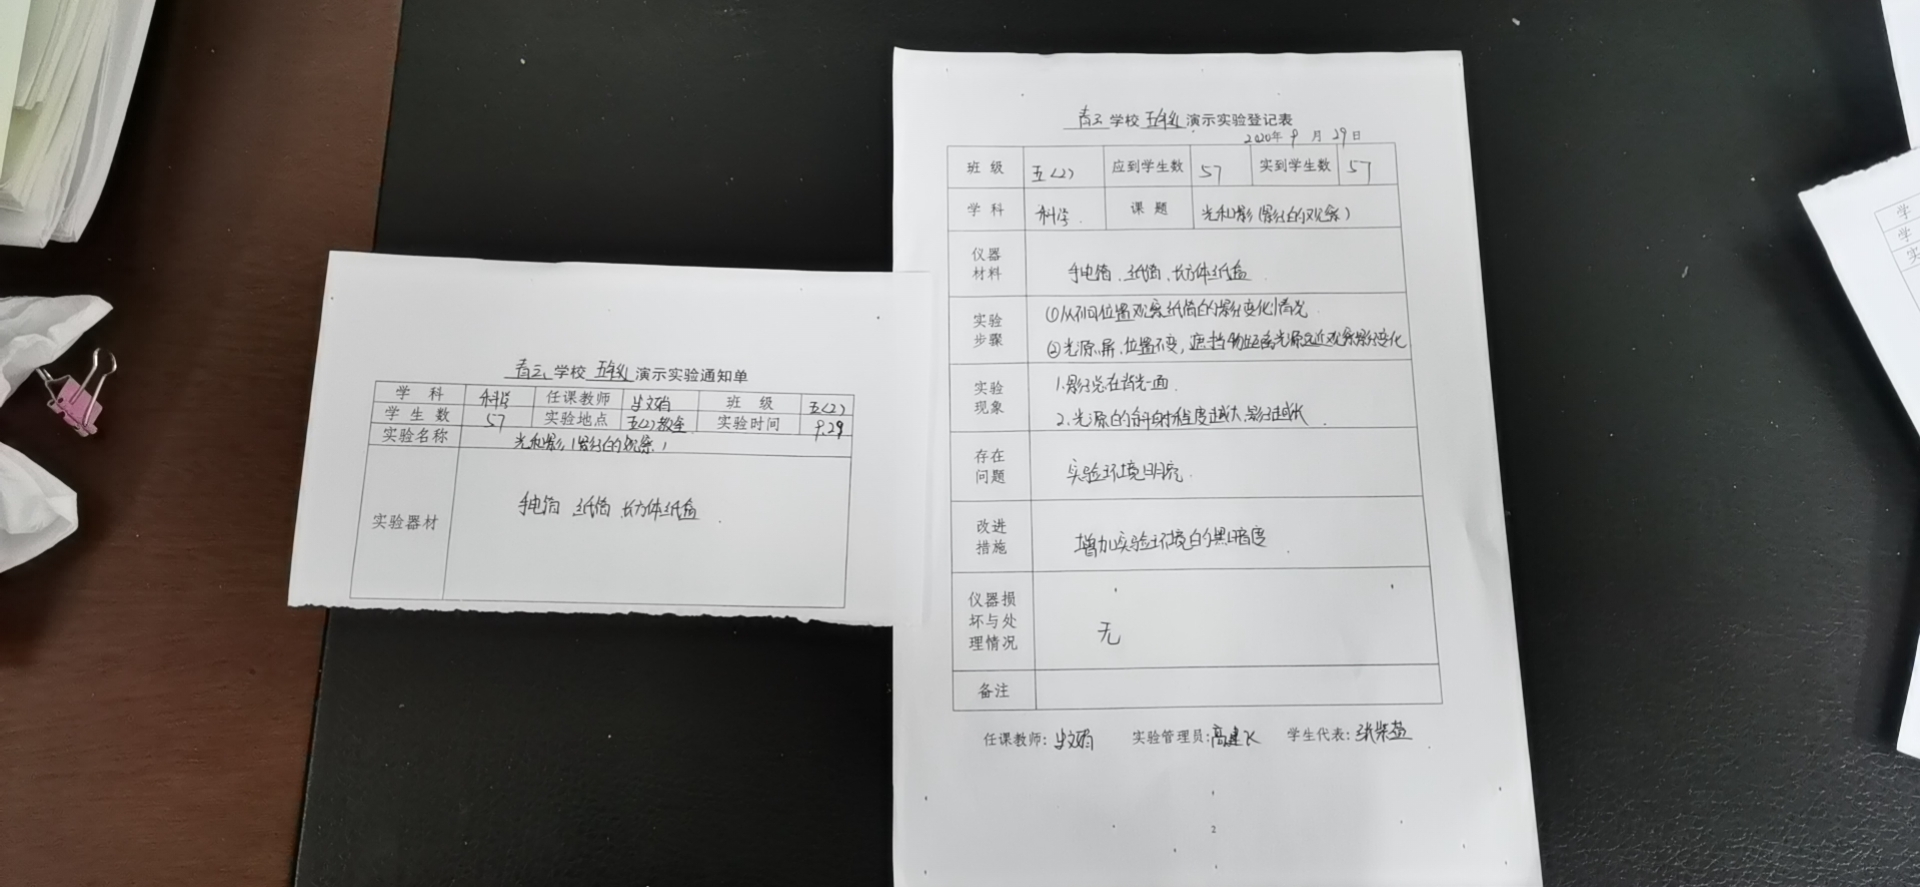 青云学校 五年级 演示实验通知单
学 科 科学 任课教师 班 级 五(2)
学 生 数 57 实验地点 五(2)教室 实验时间 9.29
实验名称 光和影(影子的观察)
实验器材 手电筒 纸筒 长方体纸盒
青云学校 五年级 演示实验登记表
2020年 9 月 29日
班 级 五(2) 应到学生数 57 实到学生数 57
学 科 科学 课 题 光和影(影子的观察)
仪器
材料
手电筒、纸筒、长方体纸盒
实验
步骤
①从不同位置观察纸筒的影子变化情况
②光源、屏、位置不变,遮挡物距离光源远近观察影子变化
实验
现象
1.影子总在背光一面
2.光源的斜射程度越大,影子越长
存在
问题
实验环境明亮
改进
措施
增加实验环境的黑暗度
仪器损
坏与处
理情况
无
备注
任课教师: 实验管理员: 学生代表:
2
学
学
实